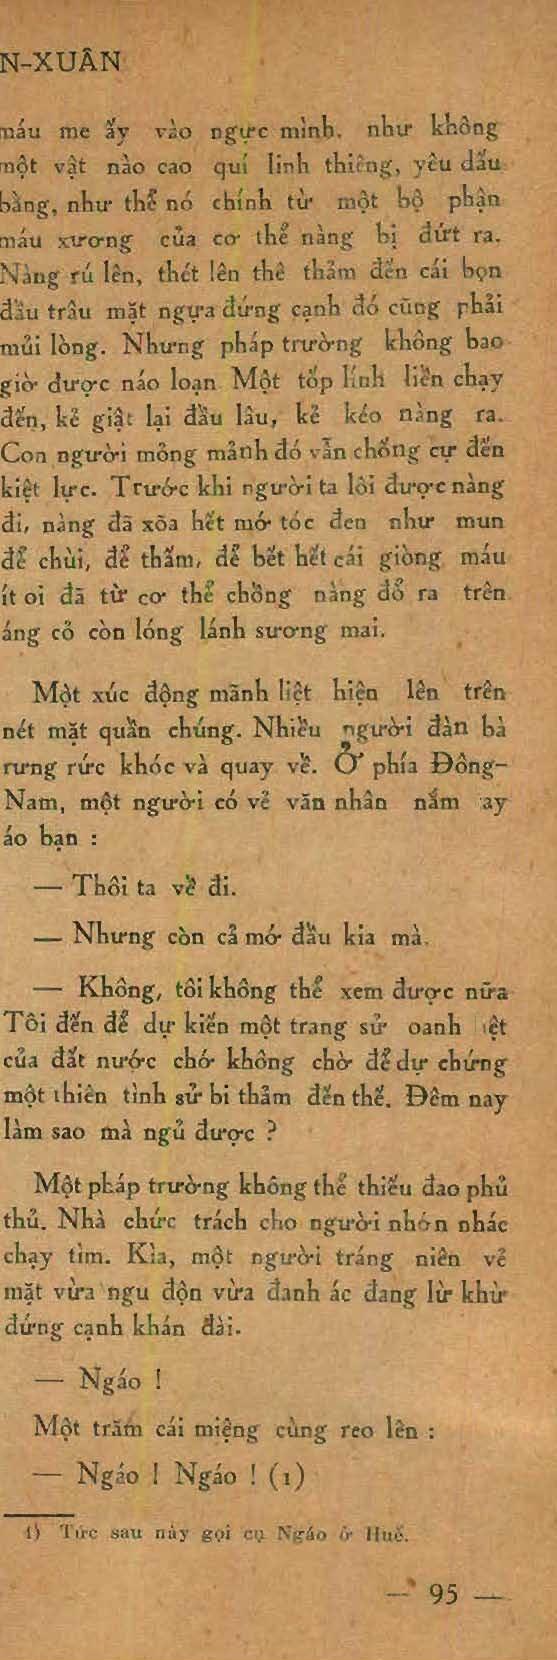 N-XUÂN
máu me ấy vào ngực mình, như không
một vật nào cao quí linh thiêng, yêu dấu
bằng, như thể nó chính từ một bộ phận
máu xương của cơ thể nàng bị đứt ra.
Nàng rú lên, thét lên thê thảm đến cái bọn
đầu trâu mặt ngựa đứng cạnh đó cũng phải
mủi lòng. Nhưng pháp trường không bao
giờ được náo loạn. Một tốp lính liền chạy
đến, kẻ giật lại đầu lâu, kẻ kéo nàng ra.
Con người mỏng mảnh đó vẫn chống cự đến
kiệt lực. Trước khi người ta lôi được nàng
đi, nàng đã xõa hết mớ tóc đen như mun
để chùi, để thấm, để bết hết cái giòng máu
ít oi đã từ cơ thể chồng nàng đổ ra trên
áng cỏ còn lóng lánh sương mai.
Một xúc động mãnh liệt hiện lên trên
nét mặt quần chúng. Nhiều người đàn bà
rưng rức khóc và quay về. Ở phía Đông-
Nam, một người có vẻ văn nhân nắm tay
áo bạn :
— Thôi ta về đi.
— Nhưng còn cả mớ đầu kia mà.
— Không, tôi không thể xem được nữa
Tôi đến để dự kiến một trang sử oanh liệt
của đất nước chớ không chờ để dự chứng
một thiên tình sử bi thảm đến thế. Đêm nay
làm sao mà ngủ được ?
Một pháp trường không thể thiếu đao phủ
thủ. Nhà chức trách cho người nhớn nhác
chạy tìm. Kìa, một người tráng niên vẻ
mặt vừa ngu độn vừa đanh ác đang lừ khừ
đứng cạnh khán đài.
— Ngáo !
Một trăm cái miệng cùng reo lên :
— Ngáo ! Ngáo ! (1)
1) Tức sau này gọi cụ Ngáo ở Huế.
— 95 —